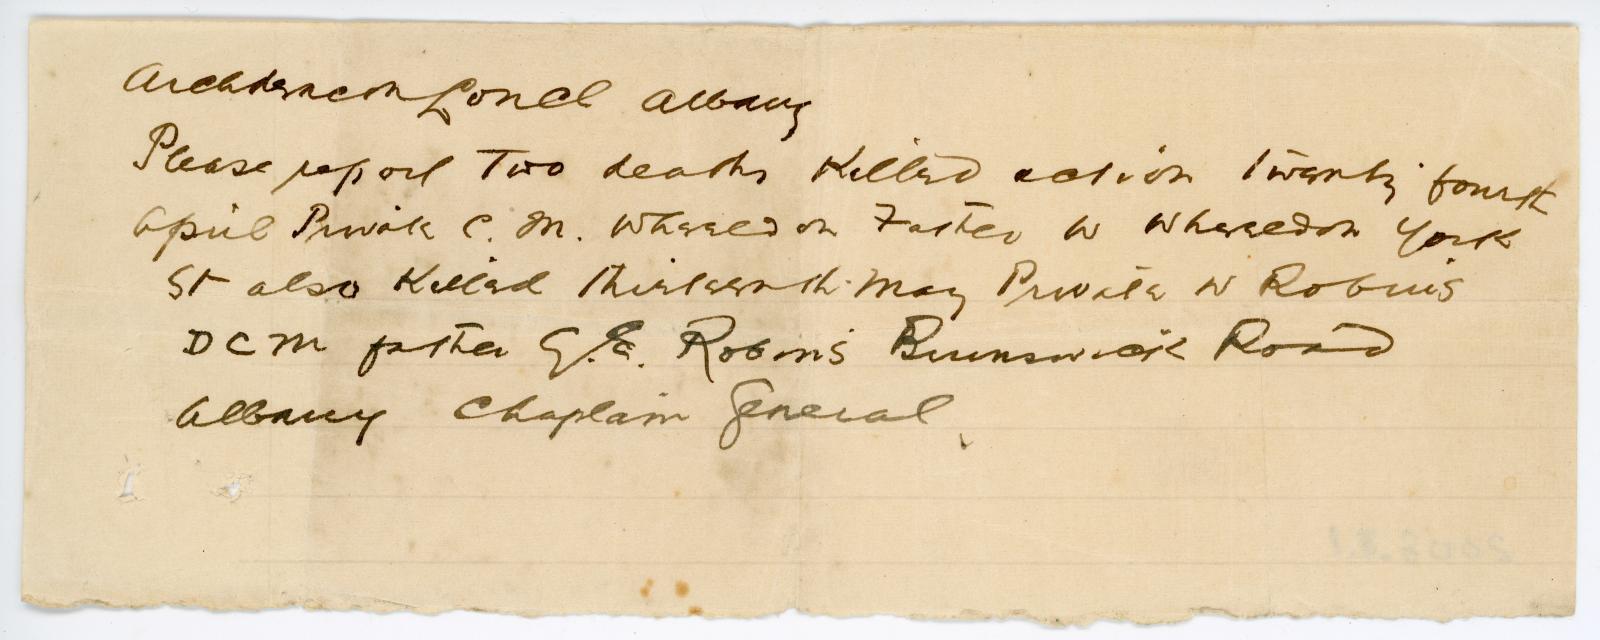 Archdeacon Louch Albany
Please report Two deaths Killed action Twenty fourth
April Private C. M. Wheeldon Father W Wheeldon York
St also Killed Thirteenth May Private W Robins
DCM father G. E. Robins Brunswick Road
Albany Chaplain General
2008.81